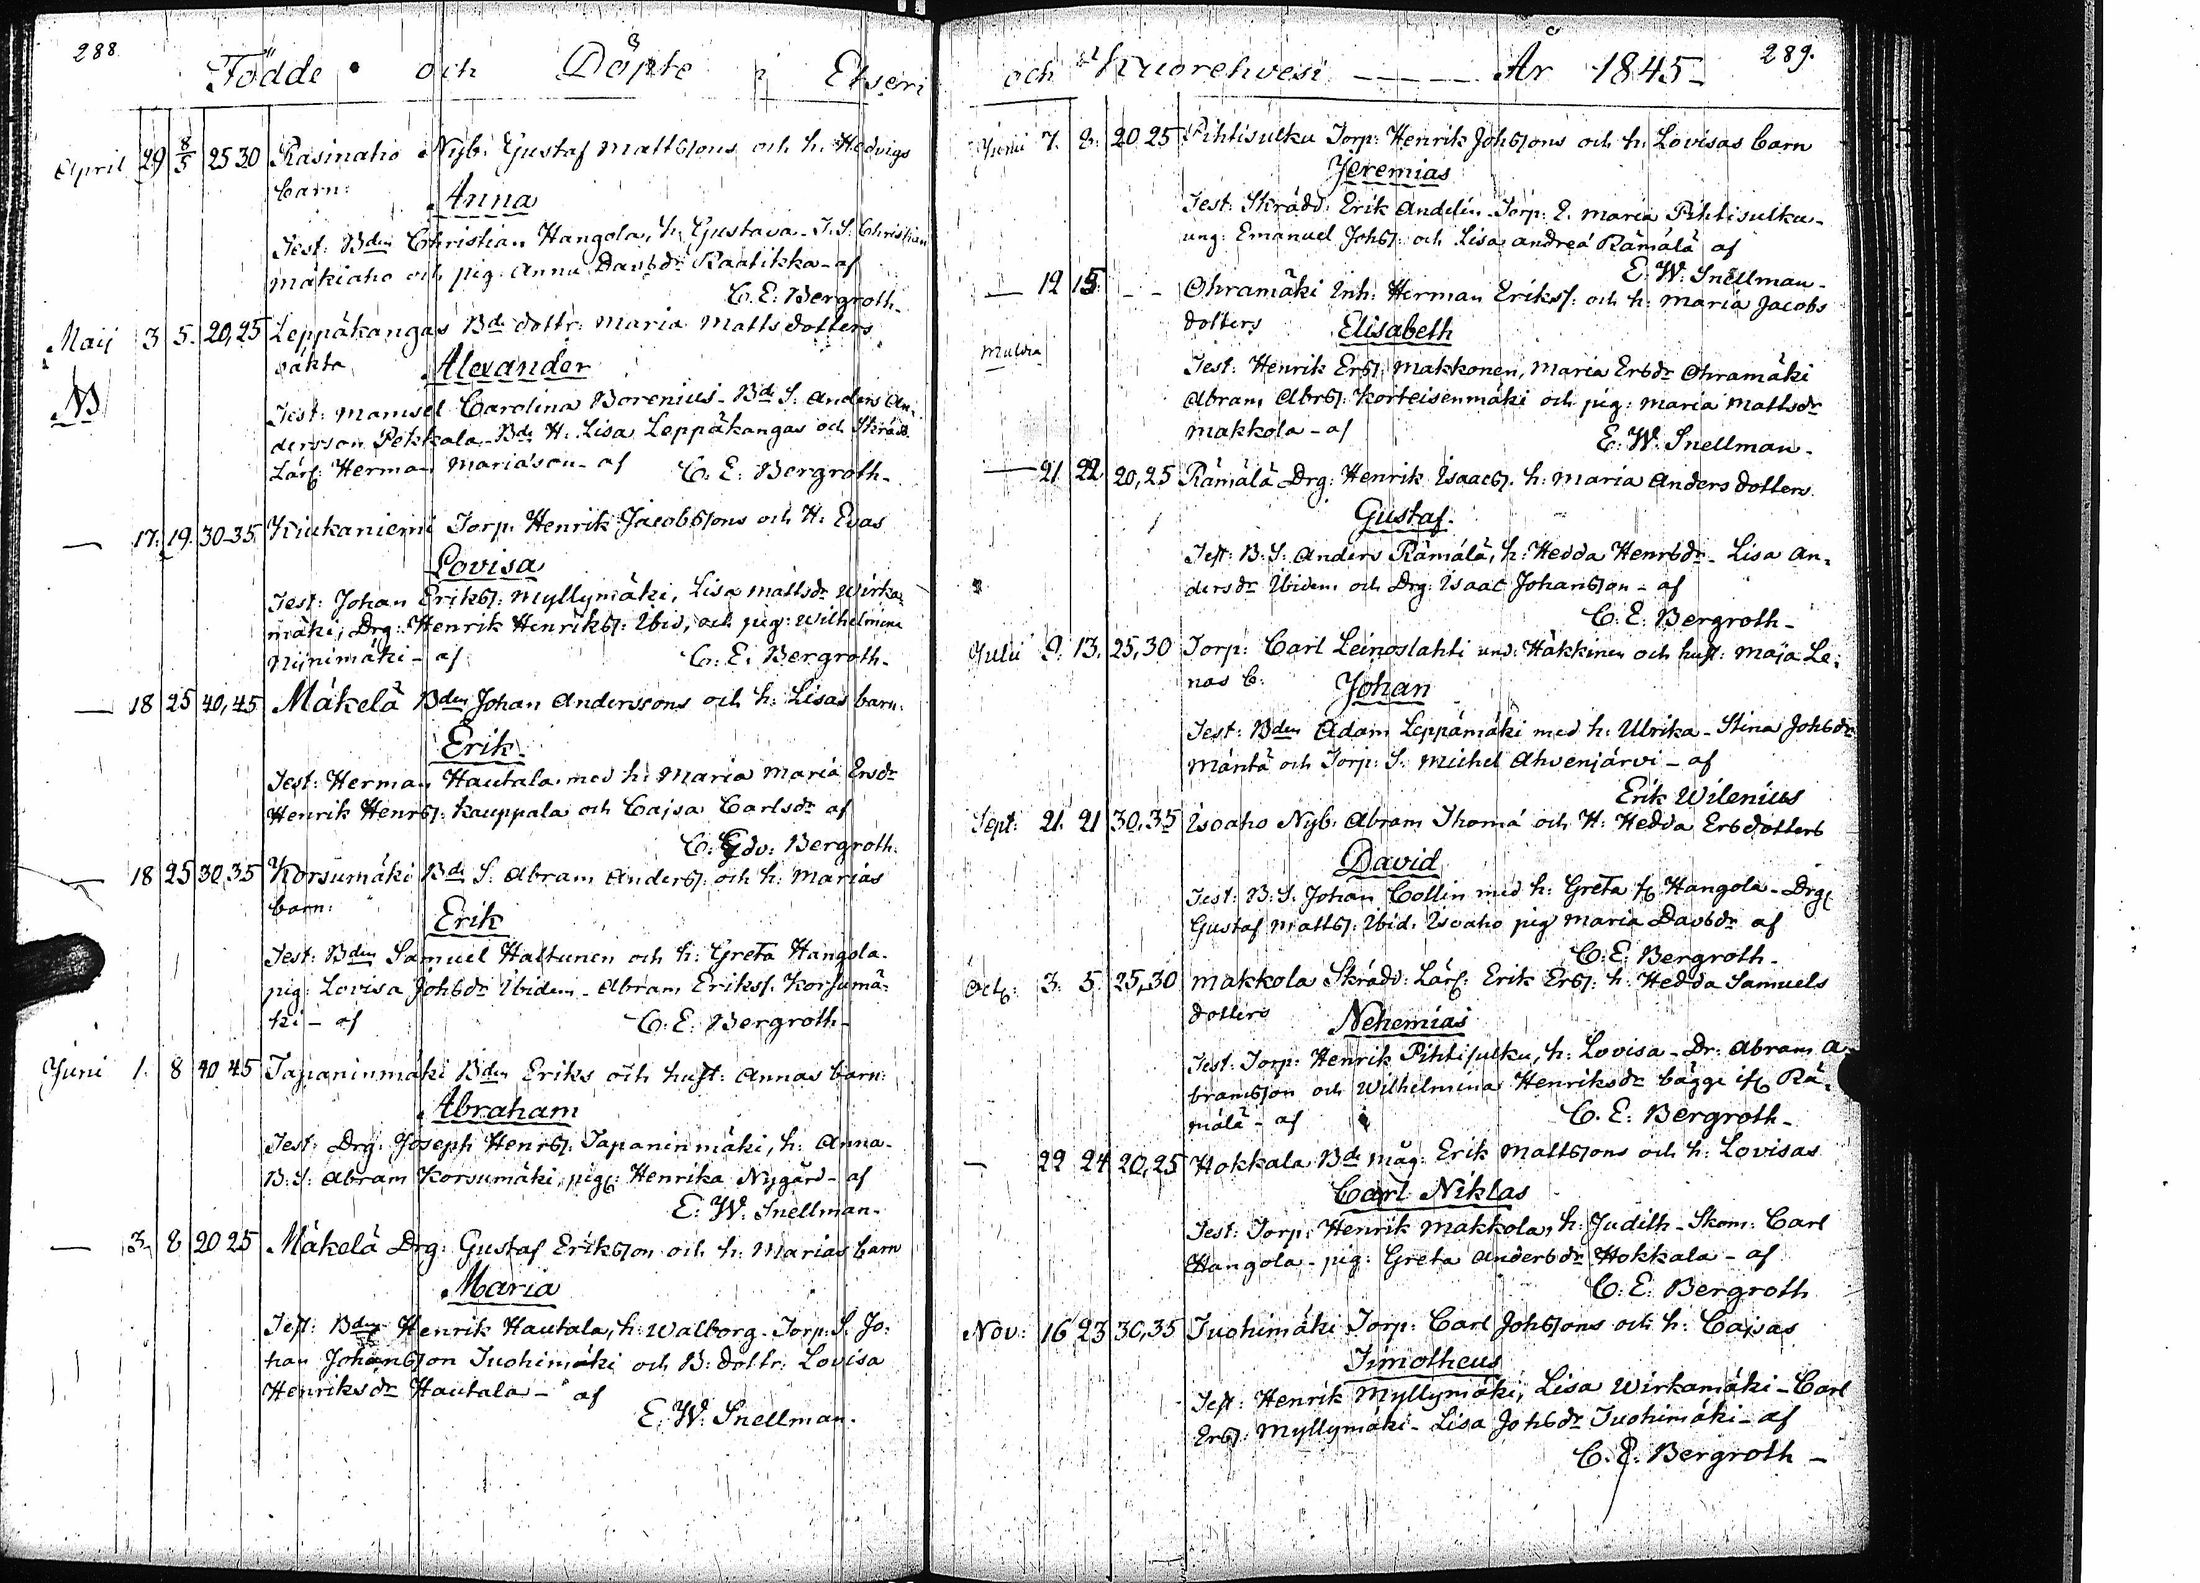 288
Födde och Döpte i Etseri
April 29 8/5 25 30 Rasinaho Nyb: Gustaf Mattssons och h. Hedvigs
barn:
Anna
Test: Bden Christian Hangola, h. Gustava - T. S. Christian
mäkiaho och pig: Anna Davsdr Raatikka - af
C. E. Bergroth -
Maij 3 5. 20,25 Leppäkangas Bde dottr: Maria Matts dotters
oäkta
Alexander
NB
Test: Mamsel Carolina Borenius - Bd S. Anders An-
dersson Pekkala - Bde H. Lisa Leppäkangas och Skrädd
Lärl: Herman Mariason - af C. E. Bergroth -
— 17. 19. 30-35 Kiukaniemi Torp: Henrik Jacobssons och H. Evas
Lovisa
Test: Johan Erikss: Myllymäki, Lisa Mattsdr Wirka-
mäki, Drg: Henrik Henrikss: Ibid, och pig: Wilhelmina
Niinimäki - af C. E. Bergroth -
— 18 25 40,45 Mäkelä Bden Johan Anderssons och h. Lisas barn:
Erik
Test: Herman Hautala med h. Maria Maria Ersdr
Henrik Henrss: Kauppala och Cajsa Carlsdr af
C. Edv: Bergroth.
— 18 25 30,35 Korsumäki Bde S. Abram Anderss: och h. Marias
barn:
Erik
Test: Bden Samuel Haltunen och h. Greta Hangola -
pig: Lovisa Johsdr Ibidem - Abram Erikss. Korsumä-
ki - af C. E. Bergroth -
Juni 1. 8 40 45 Tapaninmäki Bden Eriks och hust: Annas barn:
Abraham
Test: Drg. Joseph Henrss: Tapaninmäki, h. Anna -
B. S: Abram Korsumäki, pig: Henrika Nygård - af
E. W. Snellman -
— 3. 8 20 25 Mäkelä Drg: Gustaf Eriksson och h. Marias barn
Maria
Test: Bden Henrik Hautala, h. Walborg - Torp: S. Jo-
han Johansson Tuohimäki och B: dottr: Lovisa
Henriksdr Hautala - af
E. W. Snellman -
289.
och Kuorehvesi — År 1845 -
Juni 7. 8. 20 25 Pihtisulku Torp: Henrik Johssons och h. Lovisas barn
Jeremias
Test: Skrädd: Erik Andelin - Torp: E. Maria Pihtisulku -
ung: Emanuel Johss: och Lisa Andreä Rämälä af
E. W. Snellman -
— 12 15. - - Ohramäki Inh: Herman Erikss: och h. Maria Jacobs
dotters
Elisabeth
Test: Henrik Erss: Makkonen, Maria Ersdr Ohramäki
Abram Abrss: Korteisenmäki och pig: Maria Mattsdr
Makkola - af
E. W. Snellman -
— 21 22 20,25 Rämälä Drg: Henrik Isaacss. h. Maria Anders dotters
Gustaf.
Test: B. S: Anders Rämälä, h. Hedda Henrsdr - Lisa An-
dersdr Ibidem och Drg: Isaac Johansson - af
C. E. Bergroth -
Julii 9. 13. 25,30 Torp: Carl Leinoslahti und: Häkkinen och hust: Maja Le-
nas b:
Johan
Test: Bden Adam Leppämäki med h. Ulrika - Stina Johsdr
Mäntä och Torp: S. Michel Ahvenjärvi - af
Erik Wilenius
Sept: 21. 21 30,35 Isoaho Nyb: Abram Thomä och H. Hedda Ersdotters
David
Test: B. S. Johan Collin med h. Greta fr Hangola - Drg
Gustaf Mattss: Ibid. Isoaho pig Maria Davsdr af
C. E. Bergroth -
Octb: 3. 5. 25,30 Makkola Skrädd: Lärl: Erik Erss: h. Hedda Samuels
dotters
Nehemias
Test: Torp: Henrik Pihtisulku, h. Lovisa - Dr: Abram A-
bramsson och Wilhelmina Henriksdr bägge ifr Rä-
mälä - af C. E. Bergroth -
— 22 24 20,25 Hokkala Bde måg: Erik Mattssons och h. Lovisas
Carl Niklas
Test: Torp: Henrik Makkola, h. Judith - Skom: Carl
Hangola - pig: Greta Andersdr Hokkala - af
C. E. Bergroth
Nov: 16 23 30,35 Tuohimäki Torp: Carl Johssons och h. Cajsas
Timotheus
Test: Henrik Myllymäki, Lisa Wirkamäki - Carl
Erss: Myllymäki - Lisa Johsdr Tuohimäki - af
C. E. Bergroth -